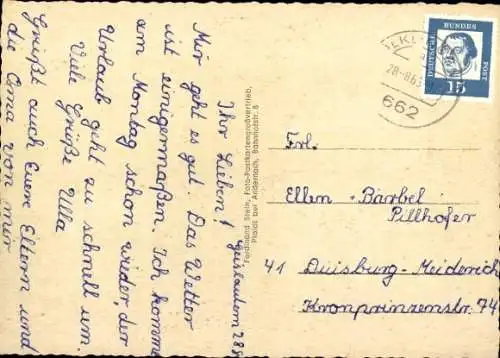 Geislautern 28.8
Ihr Lieben!
Mir geht es gut. Das Wetter
ist einigermaßen. Ich komme
am Montag schon wieder, der
Urlaub geht zu schnell um.
Viele Grüße Ulla
Grüßt auch Euere Eltern und
die Oma von mir
Ferdinand Stein, Foto-Postkartengroßvertrieb,
Plaidt bei Andernach, Bahnhofstr. 8
28.-8.63
662
DEUTSCHE BUNDESPOST
15
Frl.
Ellen - Bärbel
Pillhofer
41 Duisburg-Meiderich
Kronprinzenstr. 74